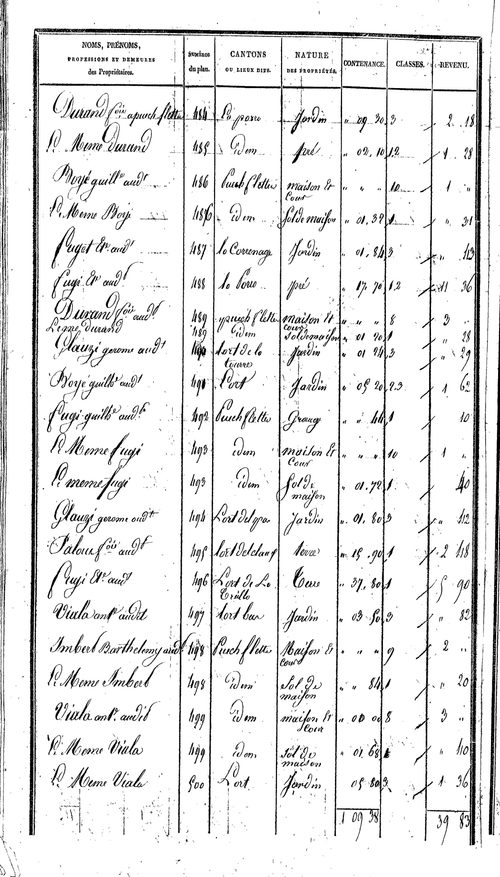 NOMS, PRÉNOMS, PROFESSIONS ET DEMEURES des Propriétaires. | NUMÉROS du plan. | CANTONS OU LIEUX DITS. | NATURE DES PROPRIÉTÉS. | CONTENANCE. | CLASSES. | REVENU.
Durand fois a puech flettes 484 Jardin " 09 30 3 2 18
Le Meme Durand 485 idem pré " 02 10 12 1 28
Boyé guille audt 486 puech flettes maison et cour " " " 10 1 "
Le Meme Boyé 486 idem Sol de maison " 01 32 1 " 31
Puget Ete audt 487 Jardin " 01 84 3 " 43
fugi Ete audt 488 pré " 17 70 12 11 36
Durand fois audt 489 puech flettes maison et cour " " " 8 3 "
Le même durand 489 idem sol de maison " 01 20 1 " 28
Glauzi gerome audt 490 lort de la tourre Jardin " 01 24 3 " 29
Boyé guille audt 491 L'ort Jardin " 05 20 2.3 1 62
fugi guille audt 492 Puech flettes Grange " " 44 1 " 10
Le Meme fugi 493 idem maison et Cour " " " 10 1 "
Le meme fugi 493 idem Sol de maison " 01 72 1 " 40
Glauzi gerome audt 494 Jardin " 01 80 3 " 42
fois audt 495 terre " 15 90 1 2 48
fugi Ete audt 496 Lort de La Terre " 37 80 1 5 90
Viala ant. audit 497 lort bas Jardin " 03 50 3 " 82
Imbert Barthelemy audt 498 Puech flettes Maison et cour " " " 9 2 "
Le Meme Imbert 498 idem Sol de maison " " 84 1 " 20
Viala ant. audit 499 idem maison et Cour " 00 00 8 3 "
Le Meme Viala 499 idem Sol de maison " 01 68 1 " 40
Le Meme Viala 500 L'ort Jardin " 05 80 3 1 36
1 09 38 39 83